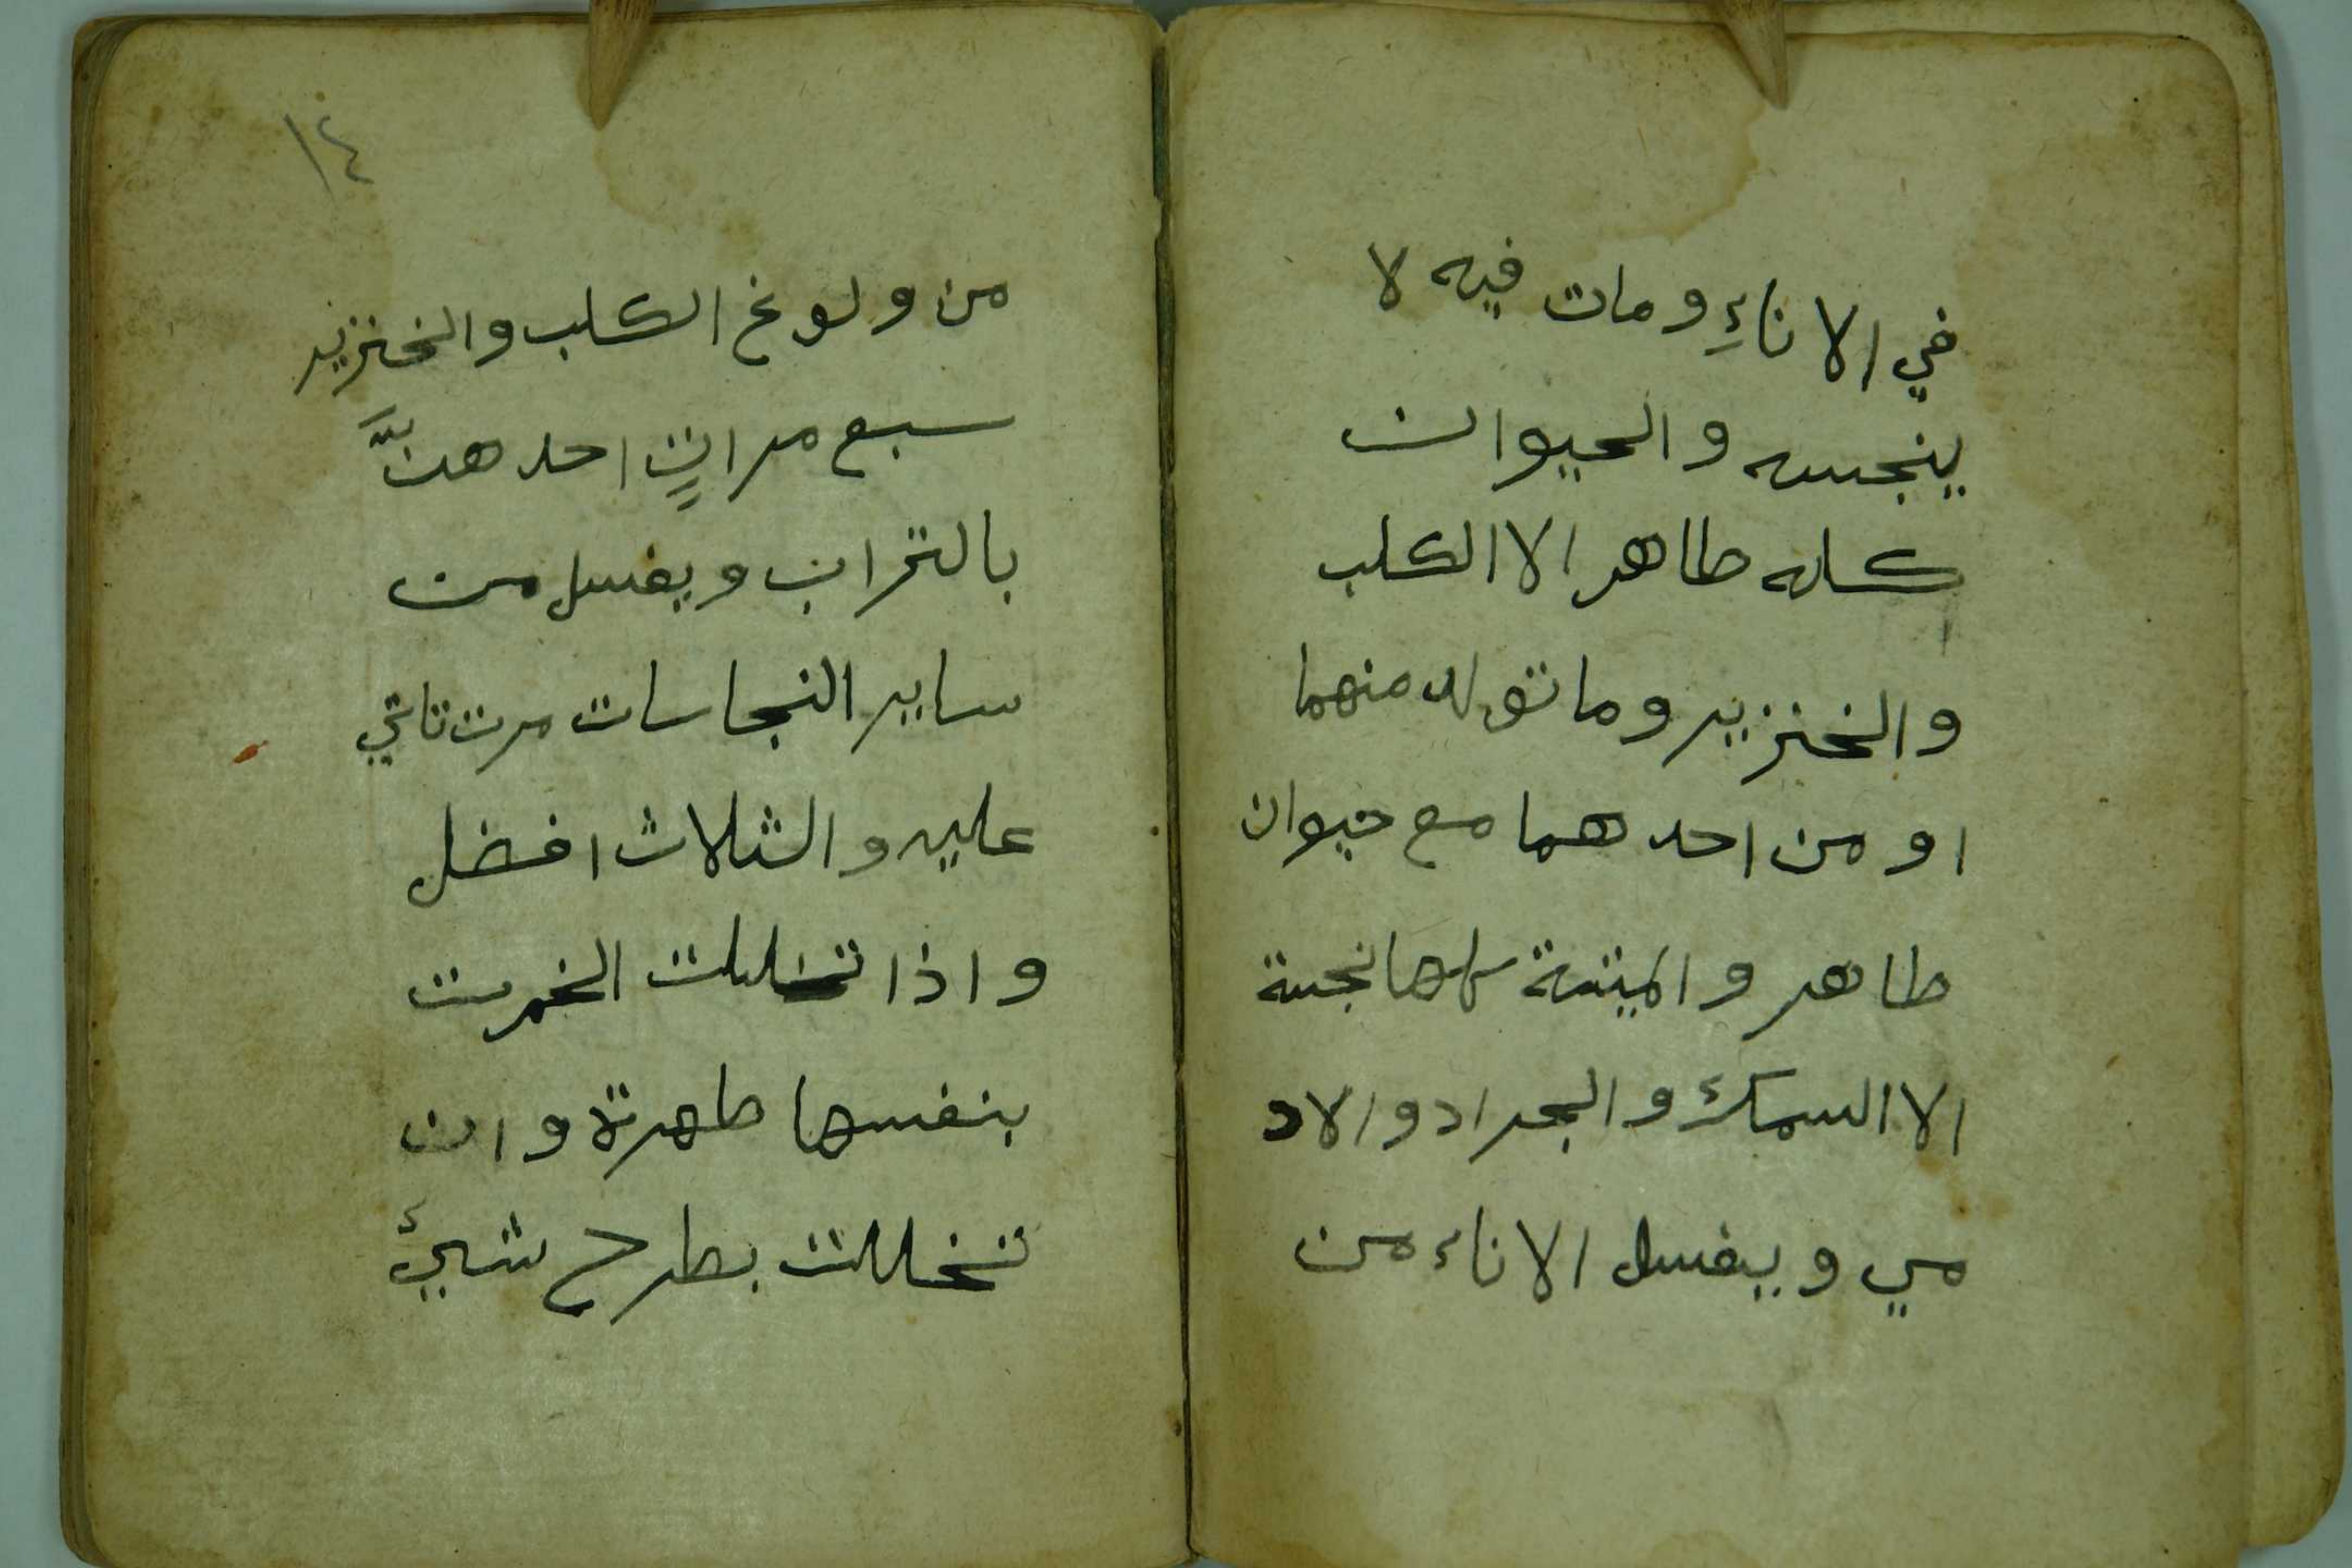 في الاناءِ ومات فيه لا
ينجسه والحيوان
كله طاهر الا الكلب
والخنزير وما تولد منهما
او من احدهما مع حيوان
طاهر والميتة كلها نجسة
الا السمك والجراد والاد
مي ويغسل الاناء من
١٤
من ولوغ الكلب والخنزير
سبع مراتٍ احدهنَّ
بالتراب ويغسل من
ساير النجاسات مرت تاتي
عليه والثلاث افضل
واذا تخللت الخمرت
بنفسها طهرة وان
تخللت بطرح شيئ